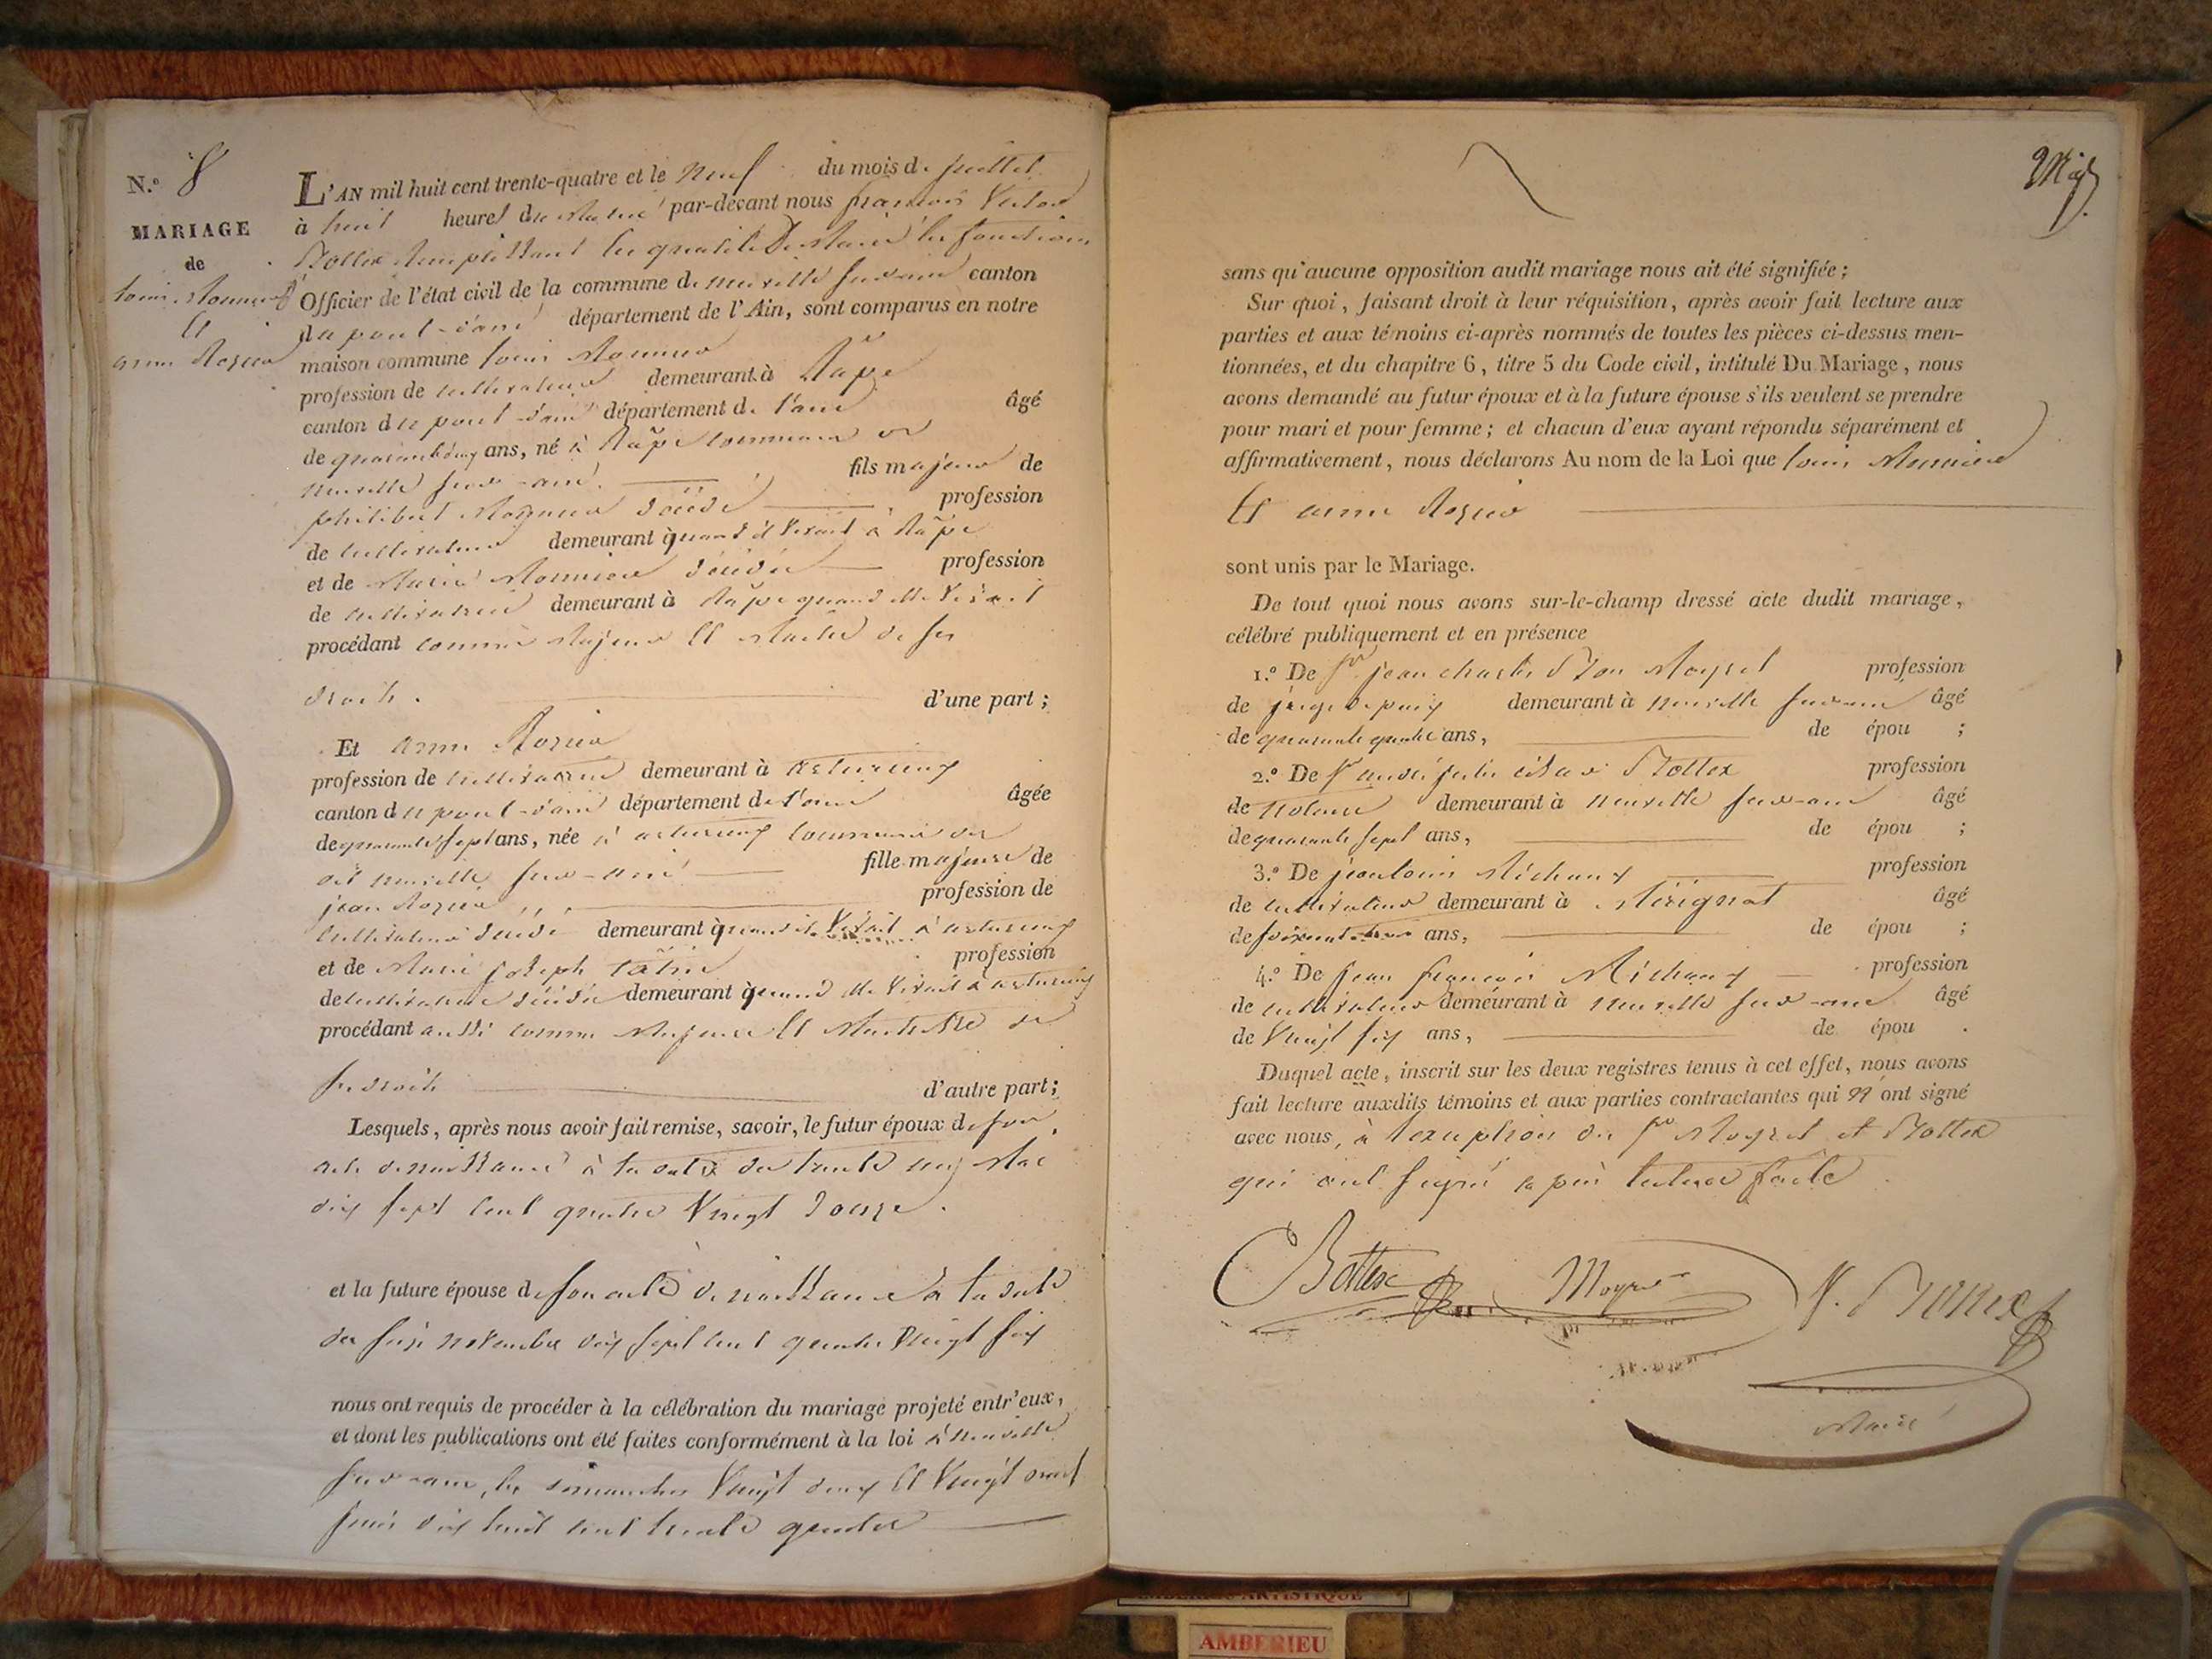 N.o 8
MARIAGE
de
Louis Monnier
Et
anne Rozier
L'AN mil huit cent trente-quatre et le neuf du mois de juillet
à huit heures du matin par-devant nous françois victor
Bottex remplissant en qualité de Maire les fonctions
Officier de l'état civil de la commune de neuville sur ain canton
du pont-d'ain département de l'Ain, sont comparus en notre
maison commune Louis Monnier
profession de cultivateur demeurant à Rape
canton du pont-d'ain département de l'ain âgé
de quarante deux ans, né à Rape commune de
neuville sur-ain. fils majeur de
philibert Monnier décédé profession
de cultivateur demeurant quand il vivait à Rape
et de Marie Monnier décédée profession
de cultivatrice demeurant à Rape quand elle vivait
procédant comme Majeur Et Maitre de ses
droits. d'une part ;
Et anne Rozier
profession de cultivatrice demeurant à
canton du pont-d'ain département de l'ain âgée
de quarante sept ans, née à commune de
dit neuville sur-ain fille majeure de
jean Rozier profession de
cultivateur décédé demeurant quand il vivait à
et de Marie joseph profession
de cultivatrice décédée demeurant quand elle vivait à
procédant aussi comme Majeure Et Maitresse de
ses droits d'autre part;
Lesquels, après nous avoir fait remise, savoir, le futur époux de son
acte de naissance à la date du trente un Mai
dix sept cent quatre vingt douze.
et la future épouse de son acte de naissance à la date
du seize novembre dix sept cent quatre vingt six
nous ont requis de procéder à la célébration du mariage projeté entr'eux,
et dont les publications ont été faites conformément à la loi à neuville
sur-ain, les dimanches vingt deux Et vingt neuf
juin dix huit cent trente quatre
sans qu'aucune opposition audit mariage nous ait été signifiée ;
Sur quoi, faisant droit à leur réquisition, après avoir fait lecture aux
parties et aux témoins ci-après nommés de toutes les pièces ci-dessus men-
tionnées, et du chapitre 6, titre 5 du Code civil, intitulé Du Mariage, nous
avons demandé au futur époux et à la future épouse s'ils veulent se prendre
pour mari et pour femme ; et chacun d'eux ayant répondu séparément et
affirmativement, nous déclarons Au nom de la Loi que Louis Monnier
Et anne Rozier
sont unis par le Mariage.
De tout quoi nous avons sur-le-champ dressé acte dudit mariage,
célébré publiquement et en présence
1.o De Sr jean charles Moyret profession
de juge de paix demeurant à neuville sur-ain âgé
de quarante quatre ans, de épou ;
2.o De Sr Bottex profession
de Notaire demeurant à neuville sur-ain âgé
de quarante sept ans, de épou ;
3.o De jean Louis Michaux profession
de cultivateur demeurant à Mérignat âgé
de ans, de épou ;
4.o De jean françois Michaux profession
de cultivateur demeurant à neuville sur-ain âgé
de vingt six ans, de épou .
Duquel acte, inscrit sur les deux registres tenus à cet effet, nous avons
fait lecture auxdits témoins et aux parties contractantes qui n'ont signé
avec nous, à l'exception de Srs Moyret et Bottex
qui ont signé après lecture faite
Bottex Moyret V. Bottex
Maire
AMBERIEU ARTISTIQUE
AMBERIEU